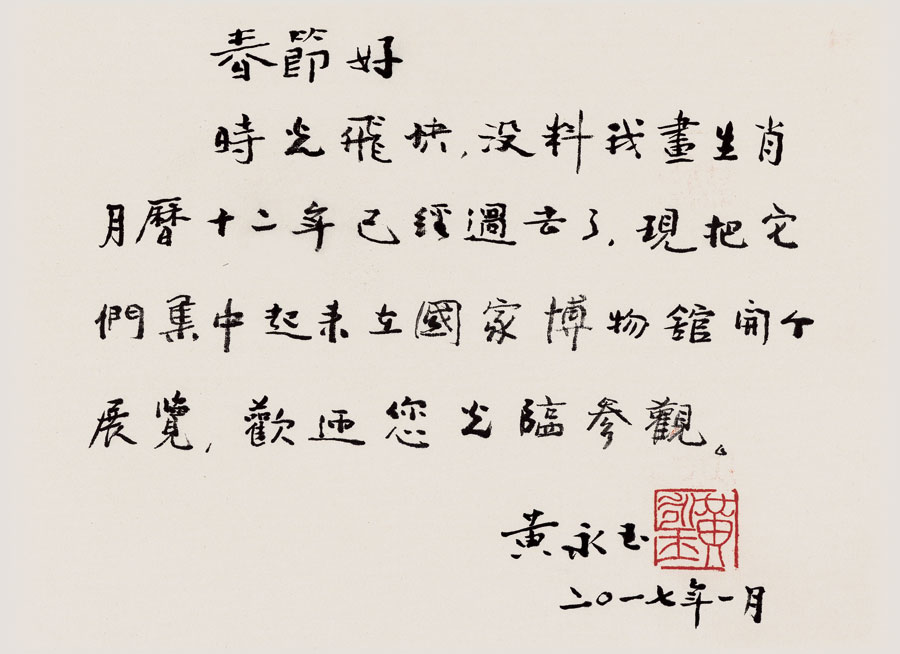 春節好
時光飛快，没料我畫生肖
月曆十二年已經過去了，現把它
們集中起来在國家博物館開个
展覽，歡迎您光臨參觀。
黄永玉
二〇一七年一月